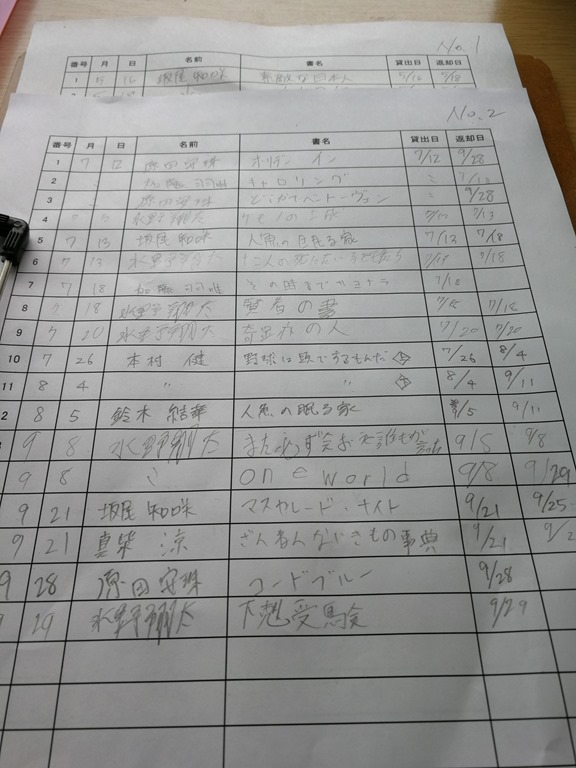 No.1
番号 月 日 名前 書名 貸出日 返却日
1 5 16 坂尾 和咲 素敵な日本人 5/16
No.2
番号 月 日 名前 書名 貸出日 返却日
1 7 12 原田 安珠 オリデー イン 7/12 9/28
2 〃 〃 トロリング 〃 7/13
3 〃 原田 安珠 どこかでベートーヴェン 〃 9/28
4 水野 翔太 ケモノの 7/13
5 7 13 坂尾 和咲 人魚の眠る家 7/13 7/18
6 7 13 水野 翔太 十二人の死にたい子どもたち 7/18
7 7 18 その時までサヨナラ 7/18
8 7 18 水野 翔太 賢者の書 7/18 7/18
9 7 20 水野 翔太 奇跡の人 7/20 7/20
10 7 26 本村 健 野球は頭でするもんだ 上 7/26 8/4
11 8 4 〃 〃 下 8/4 9/11
2 8 5 鈴木 結華 人魚の眠る家 8/5 9/11
9 8 水野 翔太 また必ず会おうと誰もが言った 9/8
9 8 〃 one world 9/8 9/29
9 21 坂尾 和咲 マスカレード・ナイト 9/21 9/25
9 21 真柴 涼 ざんねんないきもの事典 9/21 9/2
9 28 原田 安珠 コードブルー 9/28
9 29 水野 翔太 下剋受験 9/29